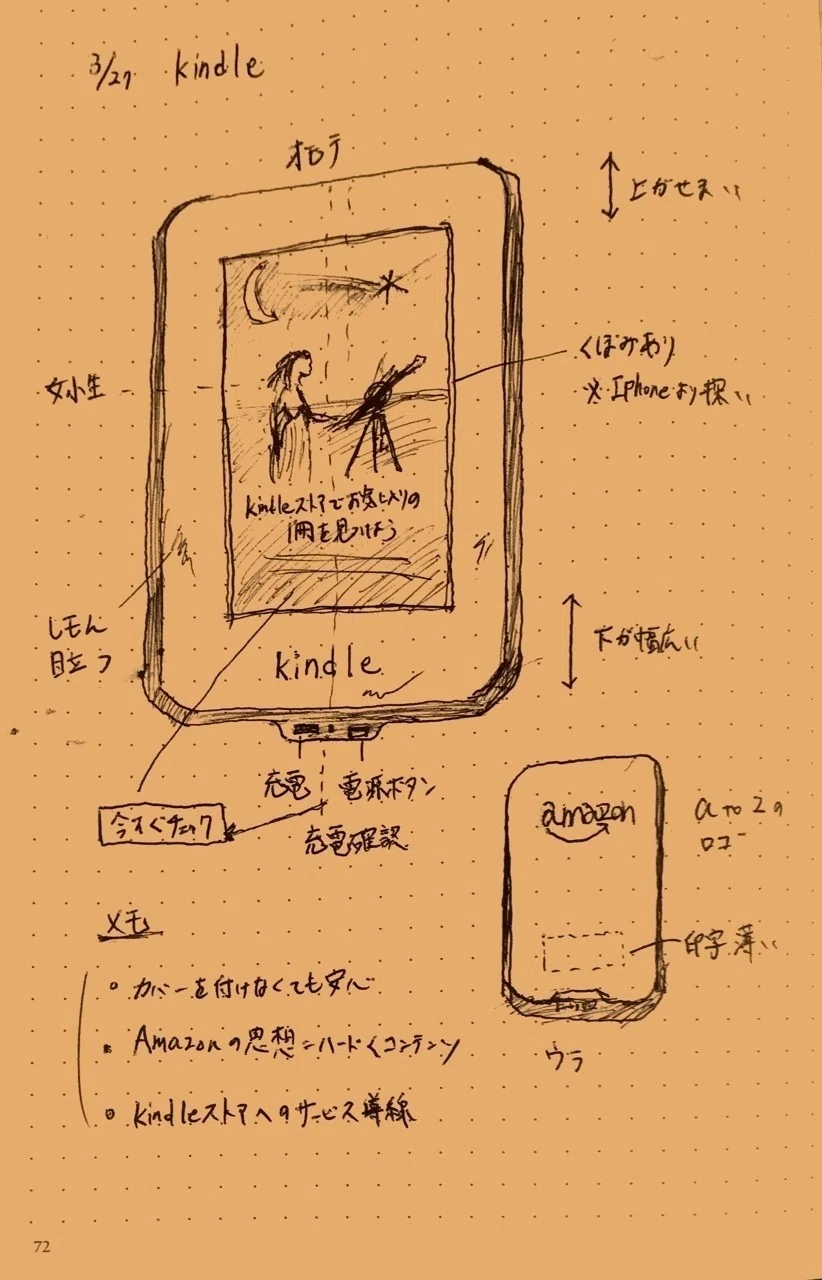 3/27 kindle
オモテ
上がせまい
くぼみあり
※Iphoneより深い
女小生
kindleストアでお気に入りの
1冊を見つけよう
しもん
目立つ
kindle
下が幅広い
充電
電源ボタン
充電確認
今すぐチェック
amazon
a to zの
ロゴ
印字薄い
ウラ
メモ
カバーを付けなくても安心
Amazonの思想=ハード<コンテンツ
kindleストアへのサービス導線
72